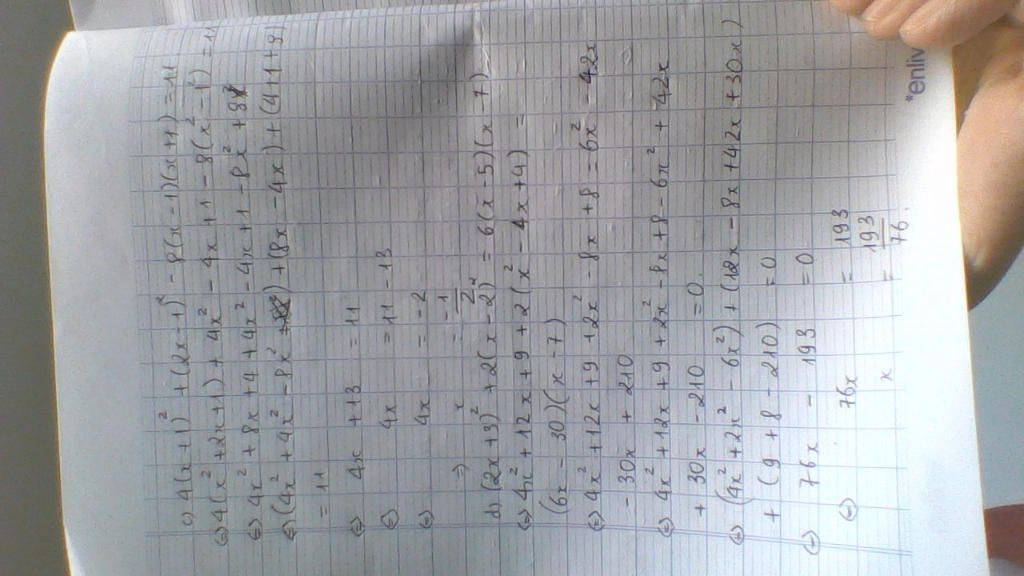 c) 4(x+1)² + (2x-1)² - 8(x-1)(x+1) = 11
(=) 4(x² + 2x+1) + 4x² - 4x +1 - 8(x² - 1²) = 11
(=) 4x² + 8x + 4 + 4x² - 4x + 1 - 8x² + 8
(=) (4x² + 4x² - 8x²) + (8x - 4x) + (4+1+8)
= 11
(=) 4x + 13 = 11
(=) 4x = 11 - 13
(=) 4x = -2
=) x = -1/2
d) (2x+3)² + 2(x-2)² = 6(x-5)(x-7)
(=) 4x² + 12x + 9 + 2(x² - 4x + 4) =
(6x - 30)(x - 7)
(=) 4x² + 12x + 9 + 2x² - 8x + 8 = 6x² - 42x
- 30x + 210
(=) 4x² + 12x + 9 + 2x² - 8x + 8 - 6x² + 42x
+ 30x - 210 = 0
(=) (4x² + 2x² - 6x²) + (12x - 8x + 42x + 30x)
+ (9 + 8 - 210) = 0
(=) 76x - 193 = 0
(=) 76x = 193
x = 193/76.
*enliv